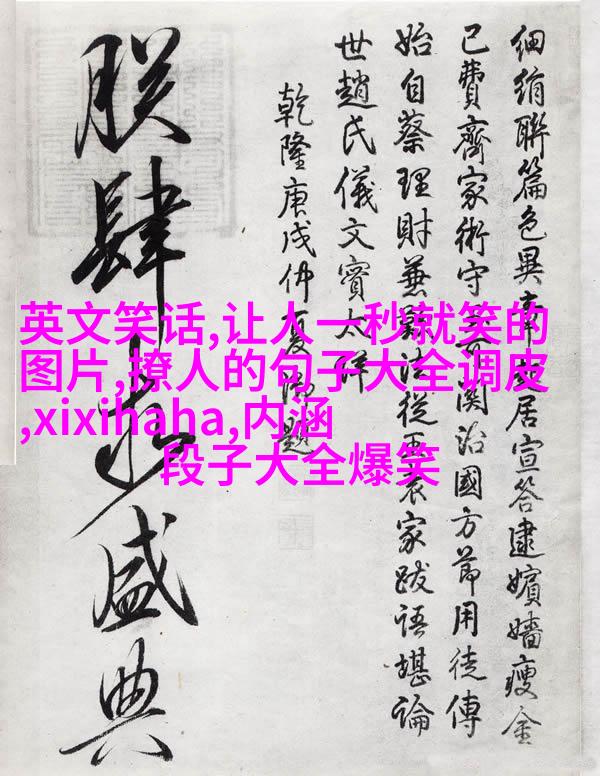 英文笑话,让人一秒就笑的
图片,撩人的句子大全调皮
,xixihaha,内涵
段子大全爆笑
細絹聯篇色異居宣答逮嬪嬙瘦金
已費齊家術守関治國方節用徒傳
始自蔡理財兼難法從家跋語堪論
世趙氏儀文實太詳
乾隆庚戌仲夏題
朕肆盛典